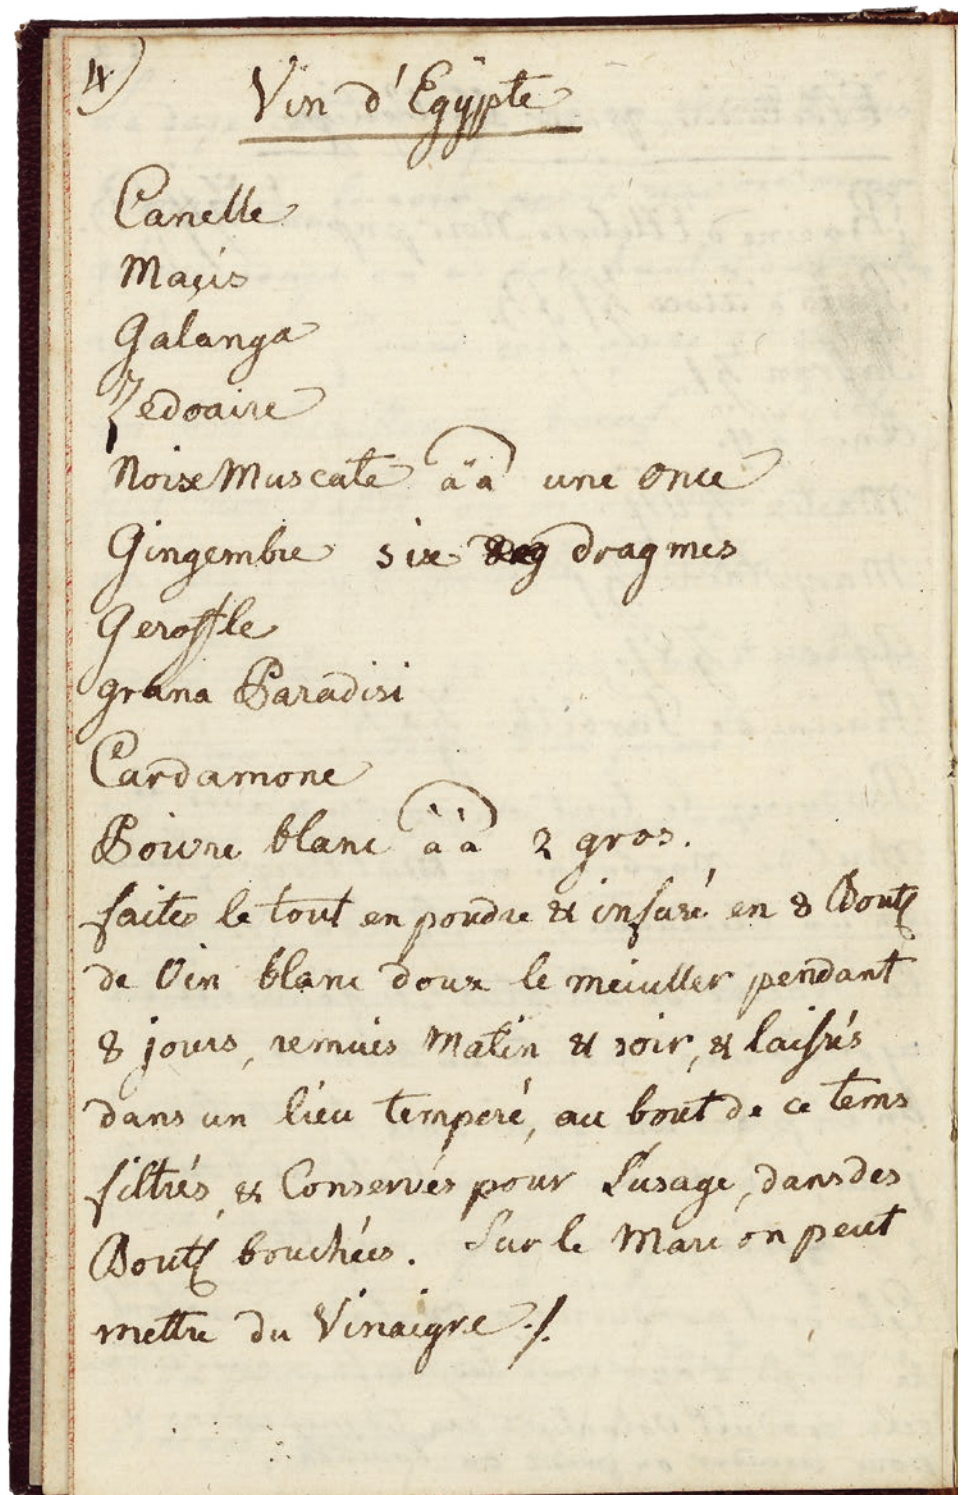 4)
Vin d'Egÿpte
Canelle
Maçis
Galanga
Zedoaire
Noix Muscate āā une Once
Gingembre six dragmes
Geroffle
grana Paradisi
Cardamone
Poivre blanc āā 2 gros.
faites le tout en poudre & infusé en 8 Bout
de Vin blanc doux le meiuller pendant
8 jours, remués Matin & soir, & laissés
dans un lieu temperé, au bout de ce tems
filtrés, & Conservés pour l'usage, dans des
Bout bouchées. Sur le Marc on peut
mettre du Vinaigre ./.